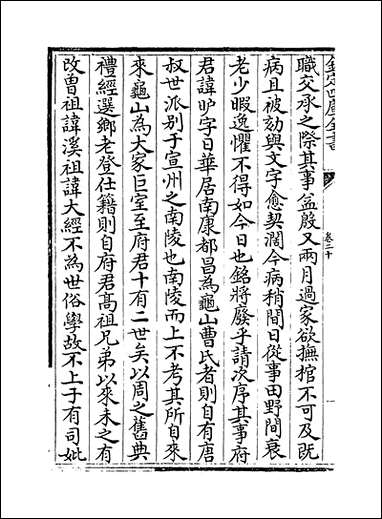 欽定四庫全書
卷二十
職交承之際其事益殷又兩月過家欲撫棺不可及既
病且被劾與文字愈契濶今病稍間日從事田野間衰
老少暇逸懼不得如今日也銘將廢乎請次序其事府
君諱𭥍字日華居南康都昌為龜山曹氏者則自有唐
叔世派别于宣州之南陵也南陵而上不考其所自來
來龜山為大家巨室至府君十有二世矣以周之舊典
禮經選鄉老登仕籍則自府君髙祖兄弟以來未之有
改曽祖諱溪祖諱大經不為世俗學故不上于有司妣